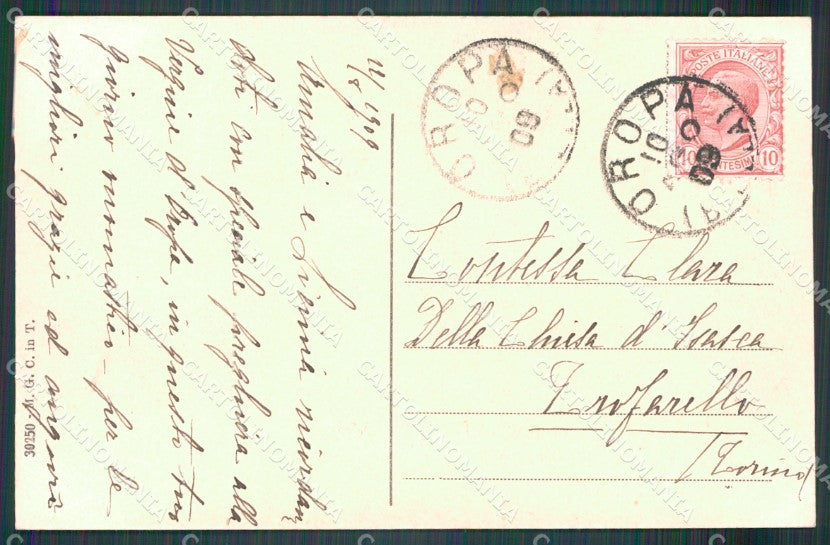 11/8 1909
Amalia e Gigina ricordan
Voti con speciale preghiera alla
Vergine d'Oropa, in questo tuo
giorno onomastico - per le
migliori grazie ed auguri
30250 M. G. C. in T.
OROPA
10 8 09
OROPA
10 8 09
POSTE ITALIANE
10 CENTESIMI 10
Contessa Clara
Della Chiesa d'Isasca
Trofarello
(Torino)
CARTOLINOMANIA